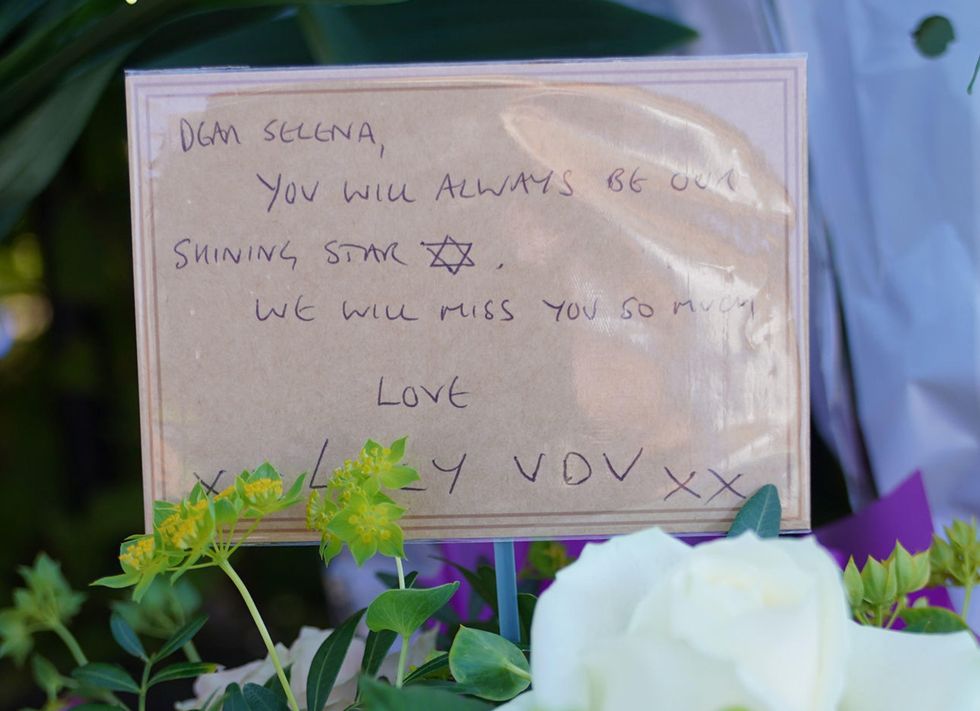 DEAR SELENA,
YOU WILL ALWAYS BE OUR
SHINING STAR ✡.
WE WILL MISS YOU SO MUCH
LOVE
X VDV XX